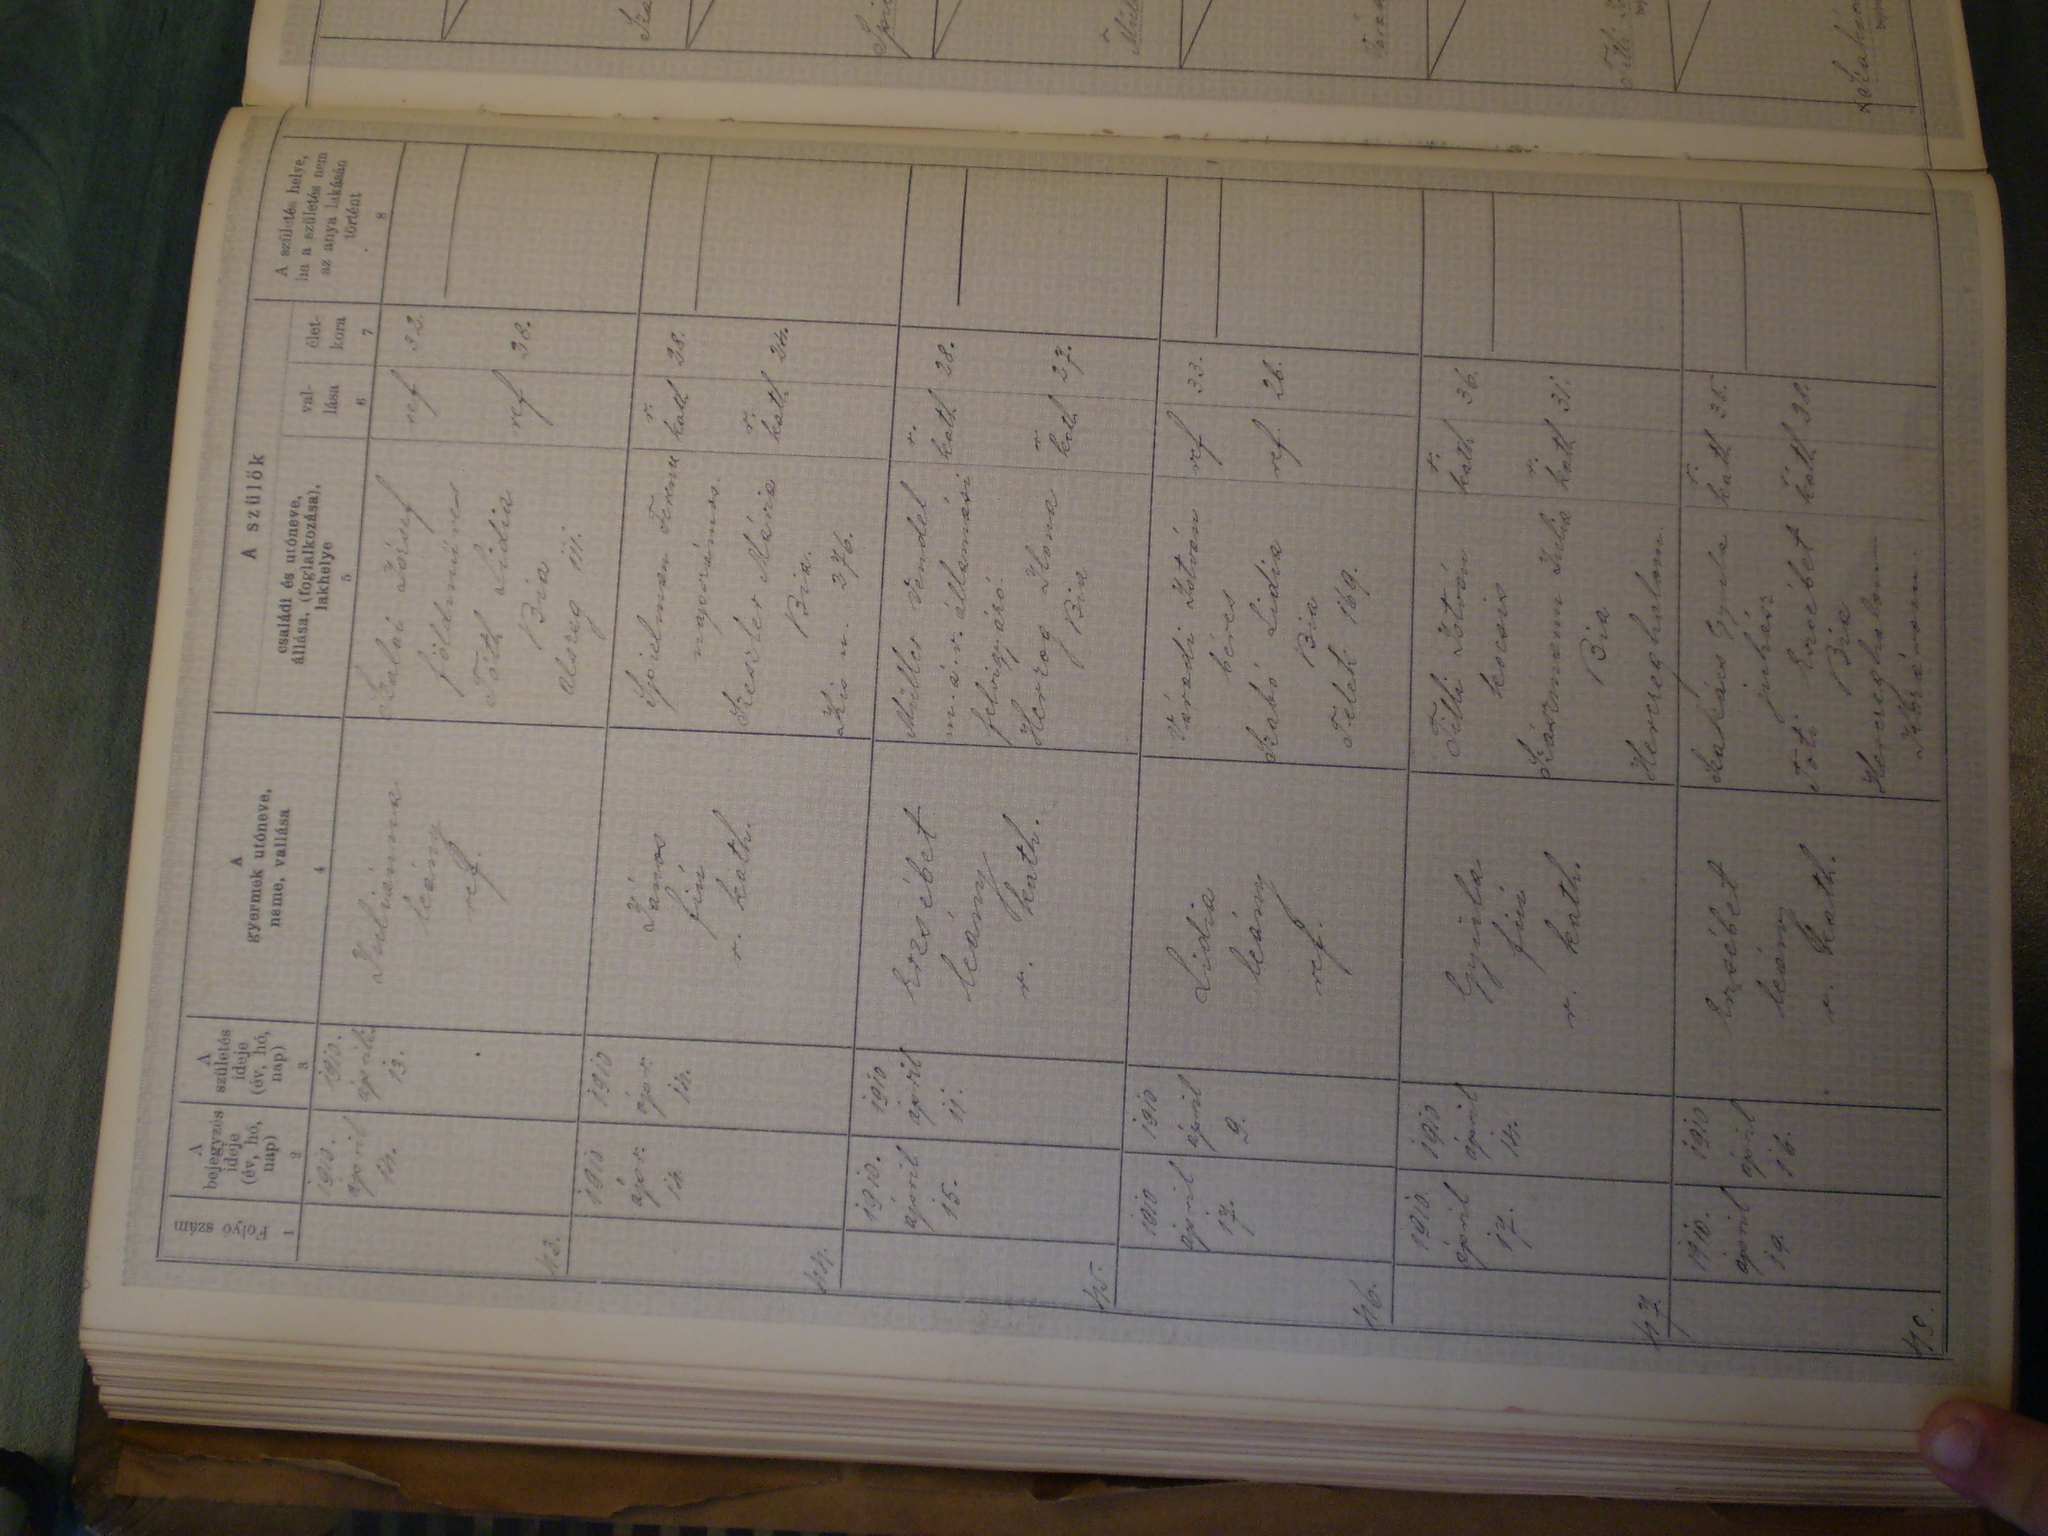 A szülők
Folyó szám
A bejegyzés ideje (év, hó, nap)
A születés ideje (év, hó, nap)
A gyermek utóneve, neme, vallása
családi és utóneve, állása, (foglalkozása), lakhelye
vallása
életkora
A születés helye, ha a születés nem az anya lakásán történt
1 2 3 4 5 6 7 8
43.
1910. április 14.
1910. április 13.
Juliánna
leány
ref.
József ref 32.
földmüves
Tóth Lidia ref 28.
Bia
alszeg 111.
44.
1910 ápr. 14
1910 ápr. 14.
János
fiú
r. kath.
Spielman r. kath 28.
Mária r. kath 24.
Bia.
276.
45.
1910. április 15.
1910 április 11.
Erzsébet
leány
r. kath.
Müller Vendel r. kath 28.
m. á. v. állomási
felvigyázó
Herzog Ilona r. kath 27.
Bia
46.
1910 április 17.
1910 április 9.
Lidia
leány
ref.
Váradi István ref 33.
béres
Szabó Lidia ref. 26.
Bia
Telek 169.
47.
1910. április 17.
1910 április 14.
Gyula
fiú
r. kath.
Tilli István r. kath 36.
kocsis
Julia r. kath 31.
Bia
Herceghalom.
48.
1910. április 19.
1910 április 16.
Erzsébet
leány
r. kath.
Szakács Gyula r. kath 35.
juhász
Erzsébet r. kath 28.
Bia
Herceghalom